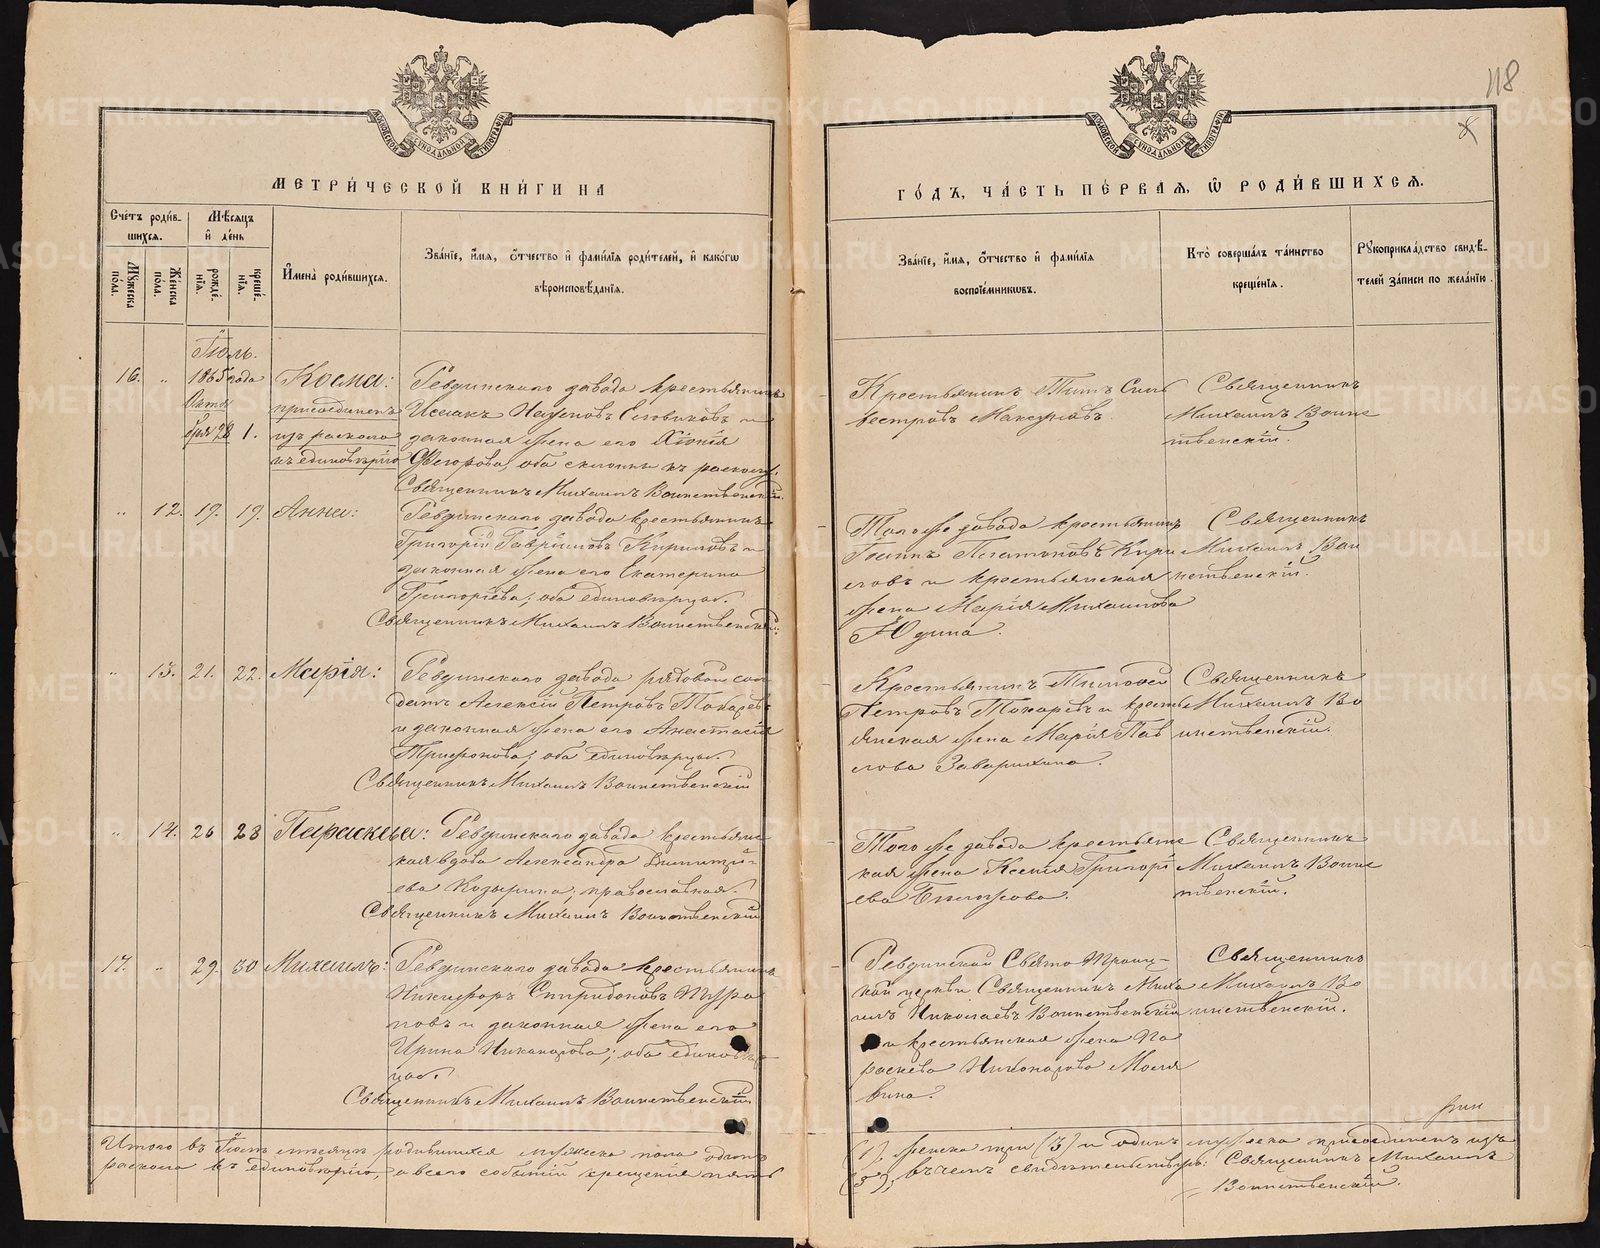 118
МОСКОВСКОЙ СѴНОДАЛЬНОЙ ТИПОГРАФІИ
МОСКОВСКОЙ СѴНОДАЛЬНОЙ ТИПОГРАФІИ
МЕТРИ́ЧЕСКОЙ КНИ́ГИ НА
ГО́ДЪ, ЧА́СТЬ ПЕ́РВАЯ, Ѡ РОДИ́ВШИХСЯ.
Сче́тъ роди́в-
шихся.
Му́жеска по́ла.
Же́нска по́ла.
Мѣ́сяцъ
и де́нь
рожде́нїя.
креще́нїя.
Имена̀ роди́вшихся.
Зва́нїе, и́мя, о́тчество и фами́лїя роди́телей, и како́гѡ
вѣроисповѣ́данїя.
Зва́нїе, и́мя, о́тчество и фами́лїя
воспрїе́мникѡвъ.
Кто̀ соверша́лъ та́инство
креще́нїя.
Рꙋкоприкла́дство свидѣ́-
телей за́писи по жела́нїю.
Іюль.
16. " 1865 года Октя бря 28 1. Косма: присоединенъ изъ раскола къ единовѣрію
Ревдинскаго завода крестьянинъ
Исаакъ Наумовъ Словиковъ и
законная жена его Хіонія
Ѳедорова, оба склонны къ расколу.
Священникъ Михаилъ Воинственскій.
Крестьянинъ Титъ Силь
вестровъ Мокеровъ.
Священникъ
Михаилъ Воинс
твенскій.
" 12. 19. 19. Анна:
Ревдинскаго завода крестьянинъ
Григорій Гавріиловъ Кириловъ и
законная жена его Екатерина
Григоріева; оба единовѣрцы.
Священникъ Михаилъ Воинственскій.
Того же завода крестьянинъ
Іоаннъ Платоновъ Кири
ловъ и крестьянская
жена Марія Михаилова
Юдина.
Священникъ
Михаилъ Вои
нственскій.
" 13. 21. 22. Марія:
Ревдинскаго завода рядовой сол
датъ Алексій Петровъ Токаревъ
и законная жена его Анастасія
Трифонова; оба единовѣрцы.
Священникъ Михаилъ Воинственскій
Крестьянинъ Тимоѳей
Петровъ Токаревъ и кресть
янская жена Марія Пав
лова Заварихина.
Священникъ
Михаилъ Во
инственскій.
" 14. 26 28 Параскева:
Ревдинскаго завода крестьянс
кая вдова Александра Димитрі-
ева Козырина, православная.
Священникъ Михаилъ Воинственскій
Того же завода крестьянс
кая жена Ксенія Григорі
ева
Священникъ
Михаилъ Воинс
твенскій.
17. " 29. 30 Михаилъ:
Ревдинскаго завода крестьянинъ
Никифоръ Спиридоновъ
и законная жена его
Ирина Никанорова; оба единовѣр-
цы.
Священникъ Михаилъ Воинственскій
Ревдинской Свято Троиц-
кой церкви Священникъ Миха
илъ Николаевъ Воинственскій
и крестьянская жена Па
раскева Никонорова
Священникъ
Михаилъ Во
инственскій.
Итого въ Іюлѣ мѣсяцѣ родившихся мужеска пола одинъ
(1), женска три (3) и одинъ мужеска присоединенъ изъ
раскола въ единовѣріе, а всего событій крещенія пять
(5); въ чемъ свидѣтельствую: Священникъ Михаилъ
Воинственскій.
METRIKI.GASO-URAL.RU